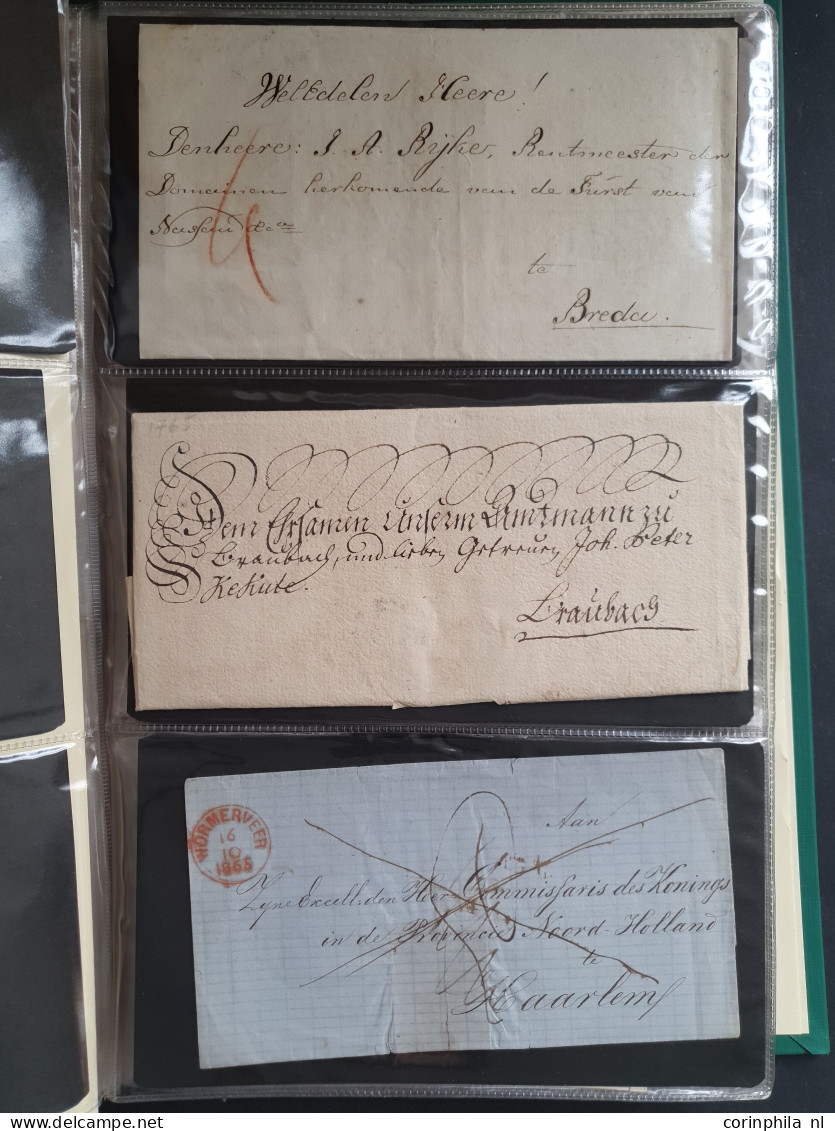 WelEdelen Heere!
Denheere: J. A. Rijke, Rentmeester der
Domainen herkomende van de Fürst van
Nassau &c
te
Breda.
1765
Dem Ehrsamen Unserm Amtmann zu
Braubach, und lieben Getreuen Joh. Peter
Kekule.
Braubach
WORMERVEER
16
10
1865
Aan
Zyne Excell: den Heer Commissaris des Konings
in de Provincie Noord-Holland
te
Haarlem
corinphila nl